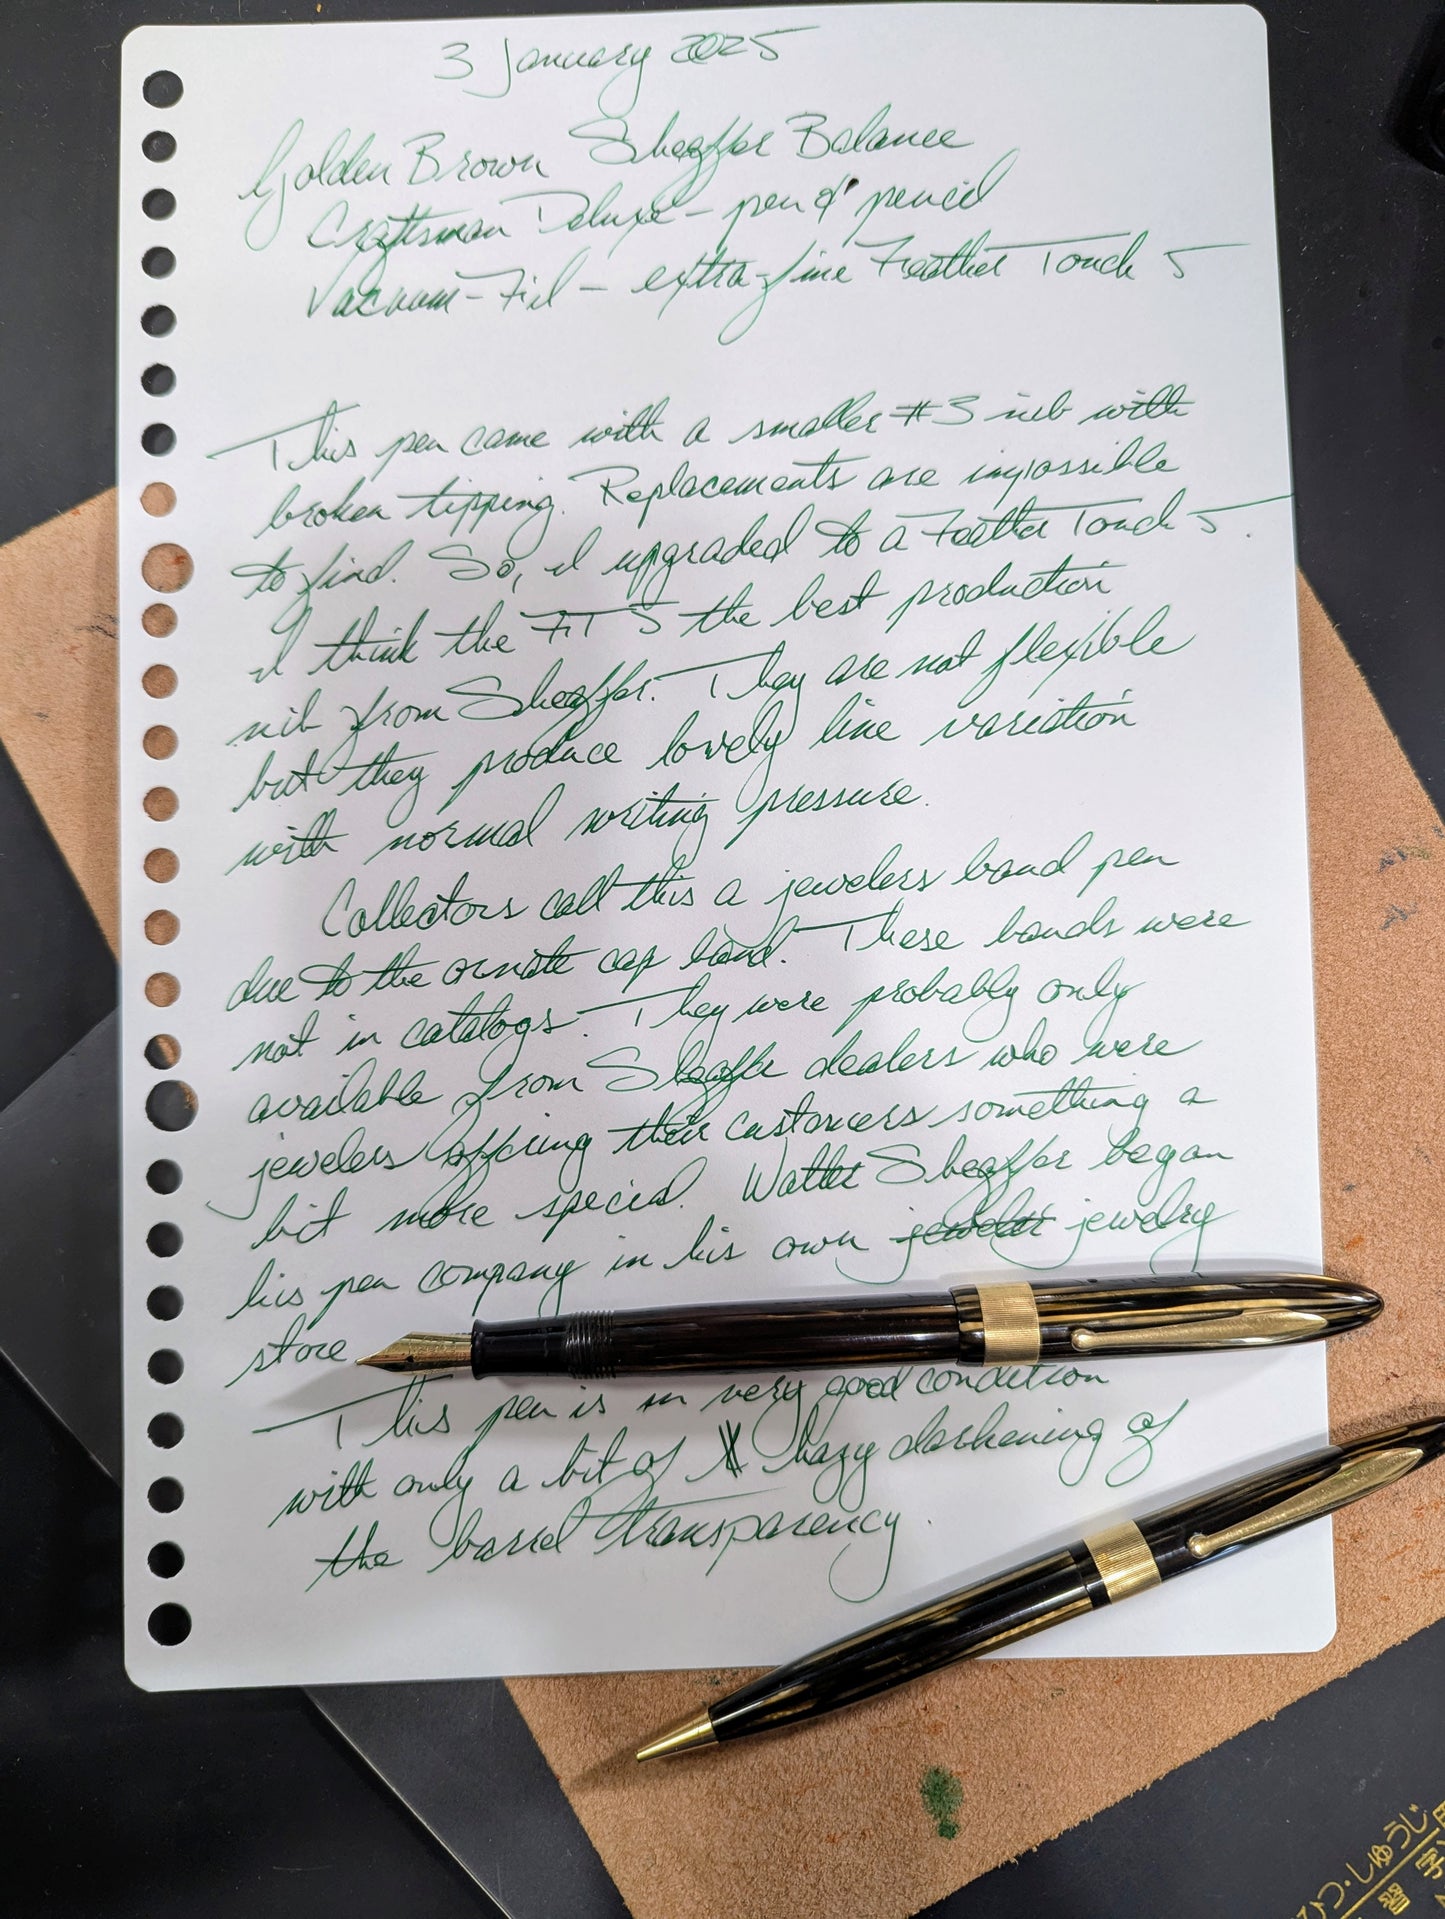 3 January 2025
Golden Brown Sheaffer Balance
Craftsman Deluxe – pen & pencil
Vacuum-Fil – extra-fine Feather Touch 5
This pen came with a smaller #3 nib with
broken tipping. Replacements are impossible
to find. So, I upgraded to a Feather Touch 5.
I think the FT 5 the best production
nib from Sheaffer. They are not flexible
but they produce lovely line variation
with normal writing pressure.
Collectors call this a jewelers band pen
due to the ornate cap band. These bands were
not in catalogs. They were probably only
available from Sheaffer dealers who were
jewelers offering their customers something a
bit more special. Walter Sheaffer began
his pen company in his own jeweler jewelry
store
This pen is in very good condition
with only a bit of hazy darkening of
the barrel transparency.
ひつ・しゅうじ
習字